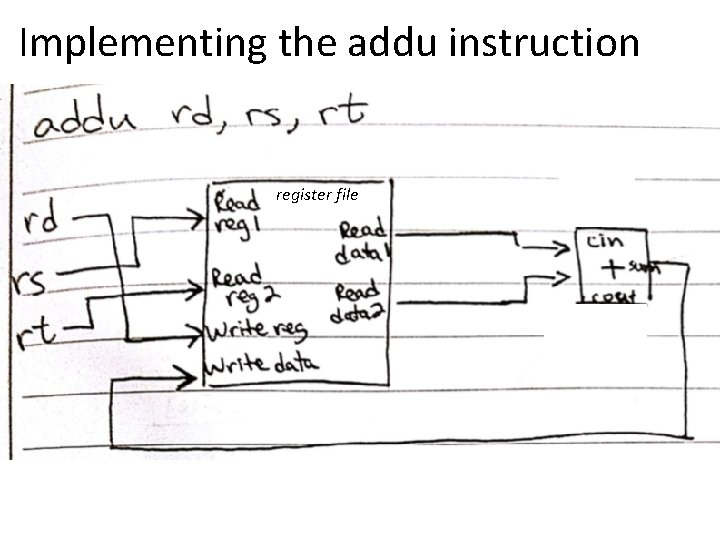 Implementing the addu instruction
addu rd, rs, rt
register file
rd
rs
rt
Read
reg1
Read
reg2
Write reg
Write data
Read
data1
Read
data2
cin
+ sum
cout